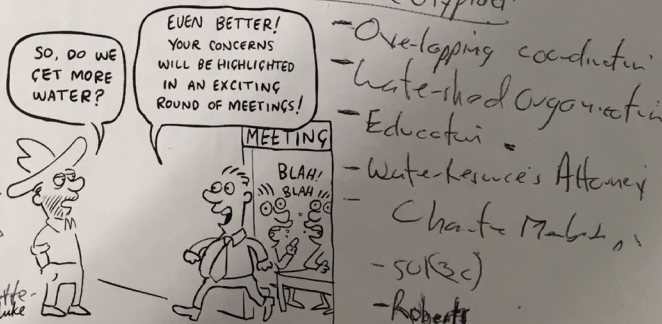 SO, DO WE
GET MORE
WATER?
EVEN BETTER!
YOUR CONCERNS
WILL BE HIGHLIGHTED
IN AN EXCITING
ROUND OF MEETINGS!
MEETING
BLAH!
BLAH!!
- Overlapping
- Watershed
- Education
- Water Resources Attorney
- 501(3c)
- Roberts